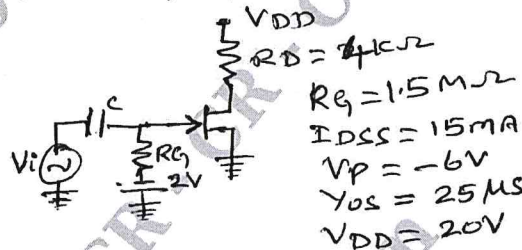 VDD
RD = 4KΩ
RG = 1.5 MΩ
IDSS = 15mA
VP = -6V
YOS = 25 µS
VDD = 20V
C
Vi
RG
2V